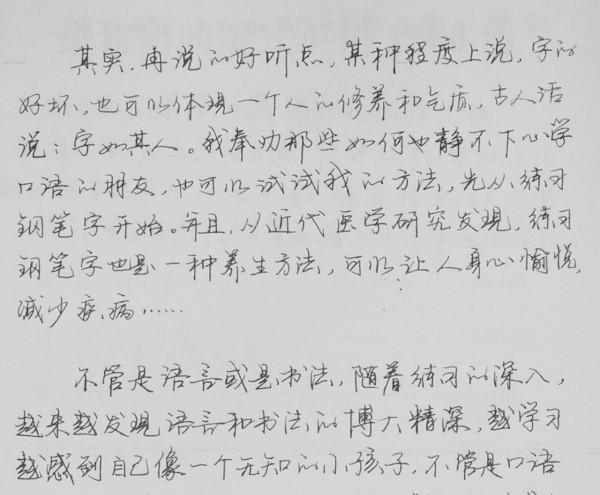 其实,再说的好听点,某种程度上说,字的
好坏,也可以体现一个人的修养和气质,古人话
说:字如其人。我奉劝那些如何也静不下心学
口语的朋友,也可以试试我的方法,先从练习
钢笔字开始。并且,从近代医学研究发现,练习
钢笔字也是一种养生方法,可以让人身心愉悦,
减少疾病……
不管是语言或是书法,随着练习的深入,
越来越发现语言和书法的博大精深,越学习
越感到自己像一个无知的小孩子,不管是口语